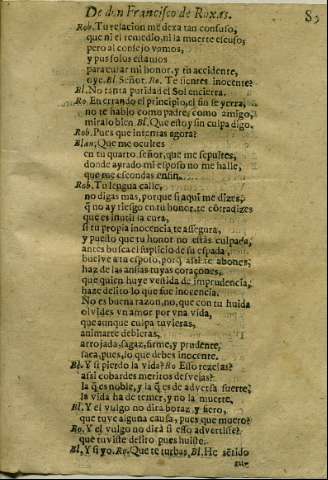 De don Francisco de Roxas.
Rob. Tu relacion me dexa tan confuso,
que ni el remedio, ni la muerte escuso,
pero al consejo vamos,
y pues solos estamos
para curar mi honor, y tu accidente,
oye. Bl. Señor. Ro. Te sientes inocente?
Bl. No tanta puridad el Sol encierra.
Ro. En errando el principio, el fin se yerra,
no te hablo como padre, como amigo,
miralo bien. Bl. Que estoy sin culpa digo.
Rob. Pues que intentas agora?
Blan. Que me ocultes
en tu quarto señor, que me sepultes,
donde ayrado mi esposo no me halle,
que me escondas en fin.
Rob. Tu lengua calle,
no digas mas, porque si aqui me dizes,
q̃ no ay riesgo en tu honor, te cõtradizes
que es inutil la cura,
si tu propia inocencia te assegura,
y puesto que tu honor no estàs culpada,
antes busca el suplicio de su espada,
buelve a tu esposo, porq̃ assi te abones,
haz de las ansias tuyas coraçones,
que quien huye vestida de imprudencia,
haze delito lo que fue inocencia.
No es buena razon, no, que con tu huida
olvides vn amor por vna vida,
que aunque culpa tuvieras,
animarte debieras,
arrojada, sagaz, firme, y prudente,
saca, pues, lo que debes inocente.
Bl. Y si pierdo la vida? Ro. Esso rezelas?
assi cobardes meritos desvelas?
la q̃ es noble, y la q̃ es de adversa suerte,
la vida ha de temer, y no la muerte,
Bl. Y el vulgo no dirà boraz, y fiero,
que tuve alguna causa, pues que muero?
Ro. Y el vulgo no dirà si esso advertiste?
que tuviste delito pues huiste.
Bl. Y si yo. Ro. Que te turbas, Bl. He sẽtido
que